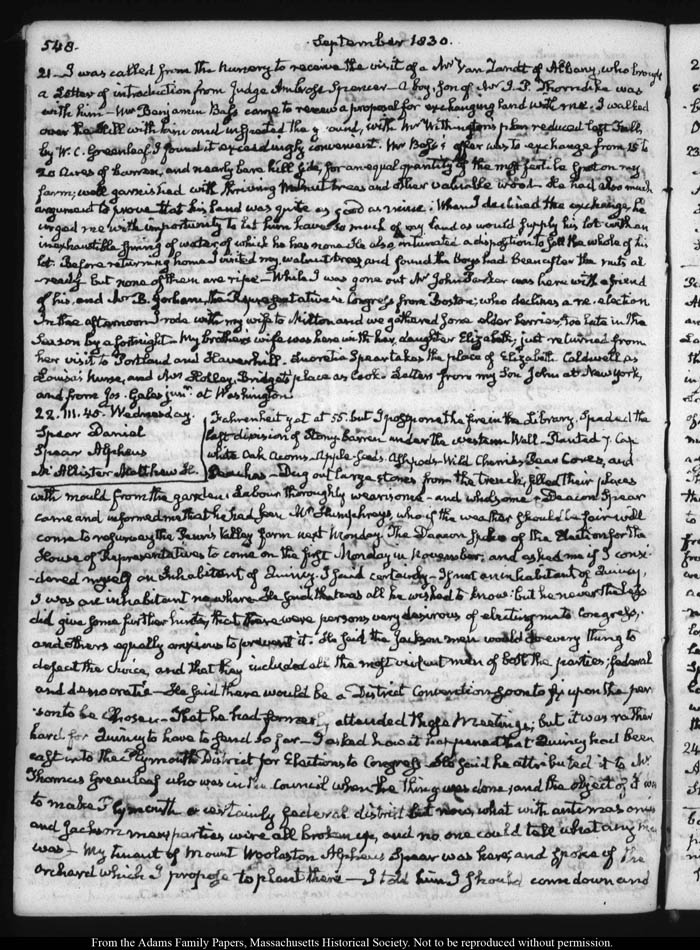 548.
September 1830.
21. I was called from the Nursery to receive the visit of a Mr Van Zandt of Albany, who brought
a Letter of introduction from Judge Ambrose Spencer. A boy, son of Mr J. P. Thorndike was
with him — Mr Benjamin Bass came to renew a proposal for exchanging land with me. I walked
over the Hill with him and inspected the ground, with Mr Withington's plan reduced last Fall,
by W. C. Greenleaf. I found it exceedingly convenient. Mr Bass's offer was to exchange from 15 to
20 Acres of barren, and nearly bare hill side, for an equal quantity of the most fertile spot on my
farm; well garnished with thriving Walnut trees and other valuable wood. He had also much
argument to prove that his land was quite as good as mine. When I declined the exchange, he
urged me with importunity to let him have so much of my land as would supply his lot with an
inexhaustible spring of water, of which he has none. He also intimated a disposition to sell the whole of his
lot. Before returning home I visited my walnut trees, and found the Boys had been after the nuts al-
-ready but none of them are ripe — While I was gone out Mr John Parker was here with a friend
of his, and Mr B. Gorham, the Representative in Congress from Boston; who declines a re-election
In the afternoon I rode with my wife to Milton and we gathered some elder berries, too late in the
Season by a fortnight — My brother's wife was here with her daughter Elizabeth, just returned from
her visit to Portland and Haverhill. Lucretia Spear takes the place of Elizabeth Caldwell as
Louisa's Nurse, and Mrs Holley, Bridget's place as Cook. Letters from my Son John at New York,
and from Jos. Gales junr. at Washington
22. III.45. Wednesday.
Spear Daniel
Spear Alpheus
McAllister Matthew H.
Fahrenheit yet at 55. but I postpone the fire in the Library. Spaded the
last division of Stony barren under the western Wall — Planted 7. Cap
white Oak Acorns — Apple-seeds, Ash pods — Wild Cherries, Pear Cores, and
Peaches. — Dug out large stones from the trench, filled their places
with mould from the garden: Labour thoroughly wearisome — and wholesome. Deacon Spear
came and informed me that he had seen Mr Humphreys, who if the weather should be fair will
come to resurvey the Penn's Valley Farm next Monday. The Deacon spoke of the Election for the
House of Representatives to come on the first Monday in November; and asked me if I consi-
-dered myself an Inhabitant of Quincy. I said certainly — If not an inhabitant of Quincy,
I was an inhabitant no where. He said that was all he wished to know: but he nevertheless
did give some further hints, that there were persons very desirous of electing me to Congress,
and others equally anxious to prevent it. He said the Jackson men would do every thing to
defeat the choice, and that they included all the most virulent men of both the parties; federal
and democratic — He said there would be a District Convention soon to fix upon the per-
-son to be chosen — That he had formerly attended these Meetings; but it was rather
hard for Quincy to have to send so far — I asked how it happened that Quincy had been
cast into the Plymouth District for Elections to Congress. He said he attributed it to Mr
Thomas Greenleaf who was in the Council when the thing was done; and the object of it was
to make Plymouth a certainly federal district but now, what with antimasonry
and Jackson men parties were all broken up, and no one could tell what any man
was — My tenant of Mount Wollaston Alpheus Spear was here, and spoke of the
orchard which I propose to plant there — I told him I should come down and
From the Adams Family Papers, Massachusetts Historical Society. Not to be reproduced without permission.